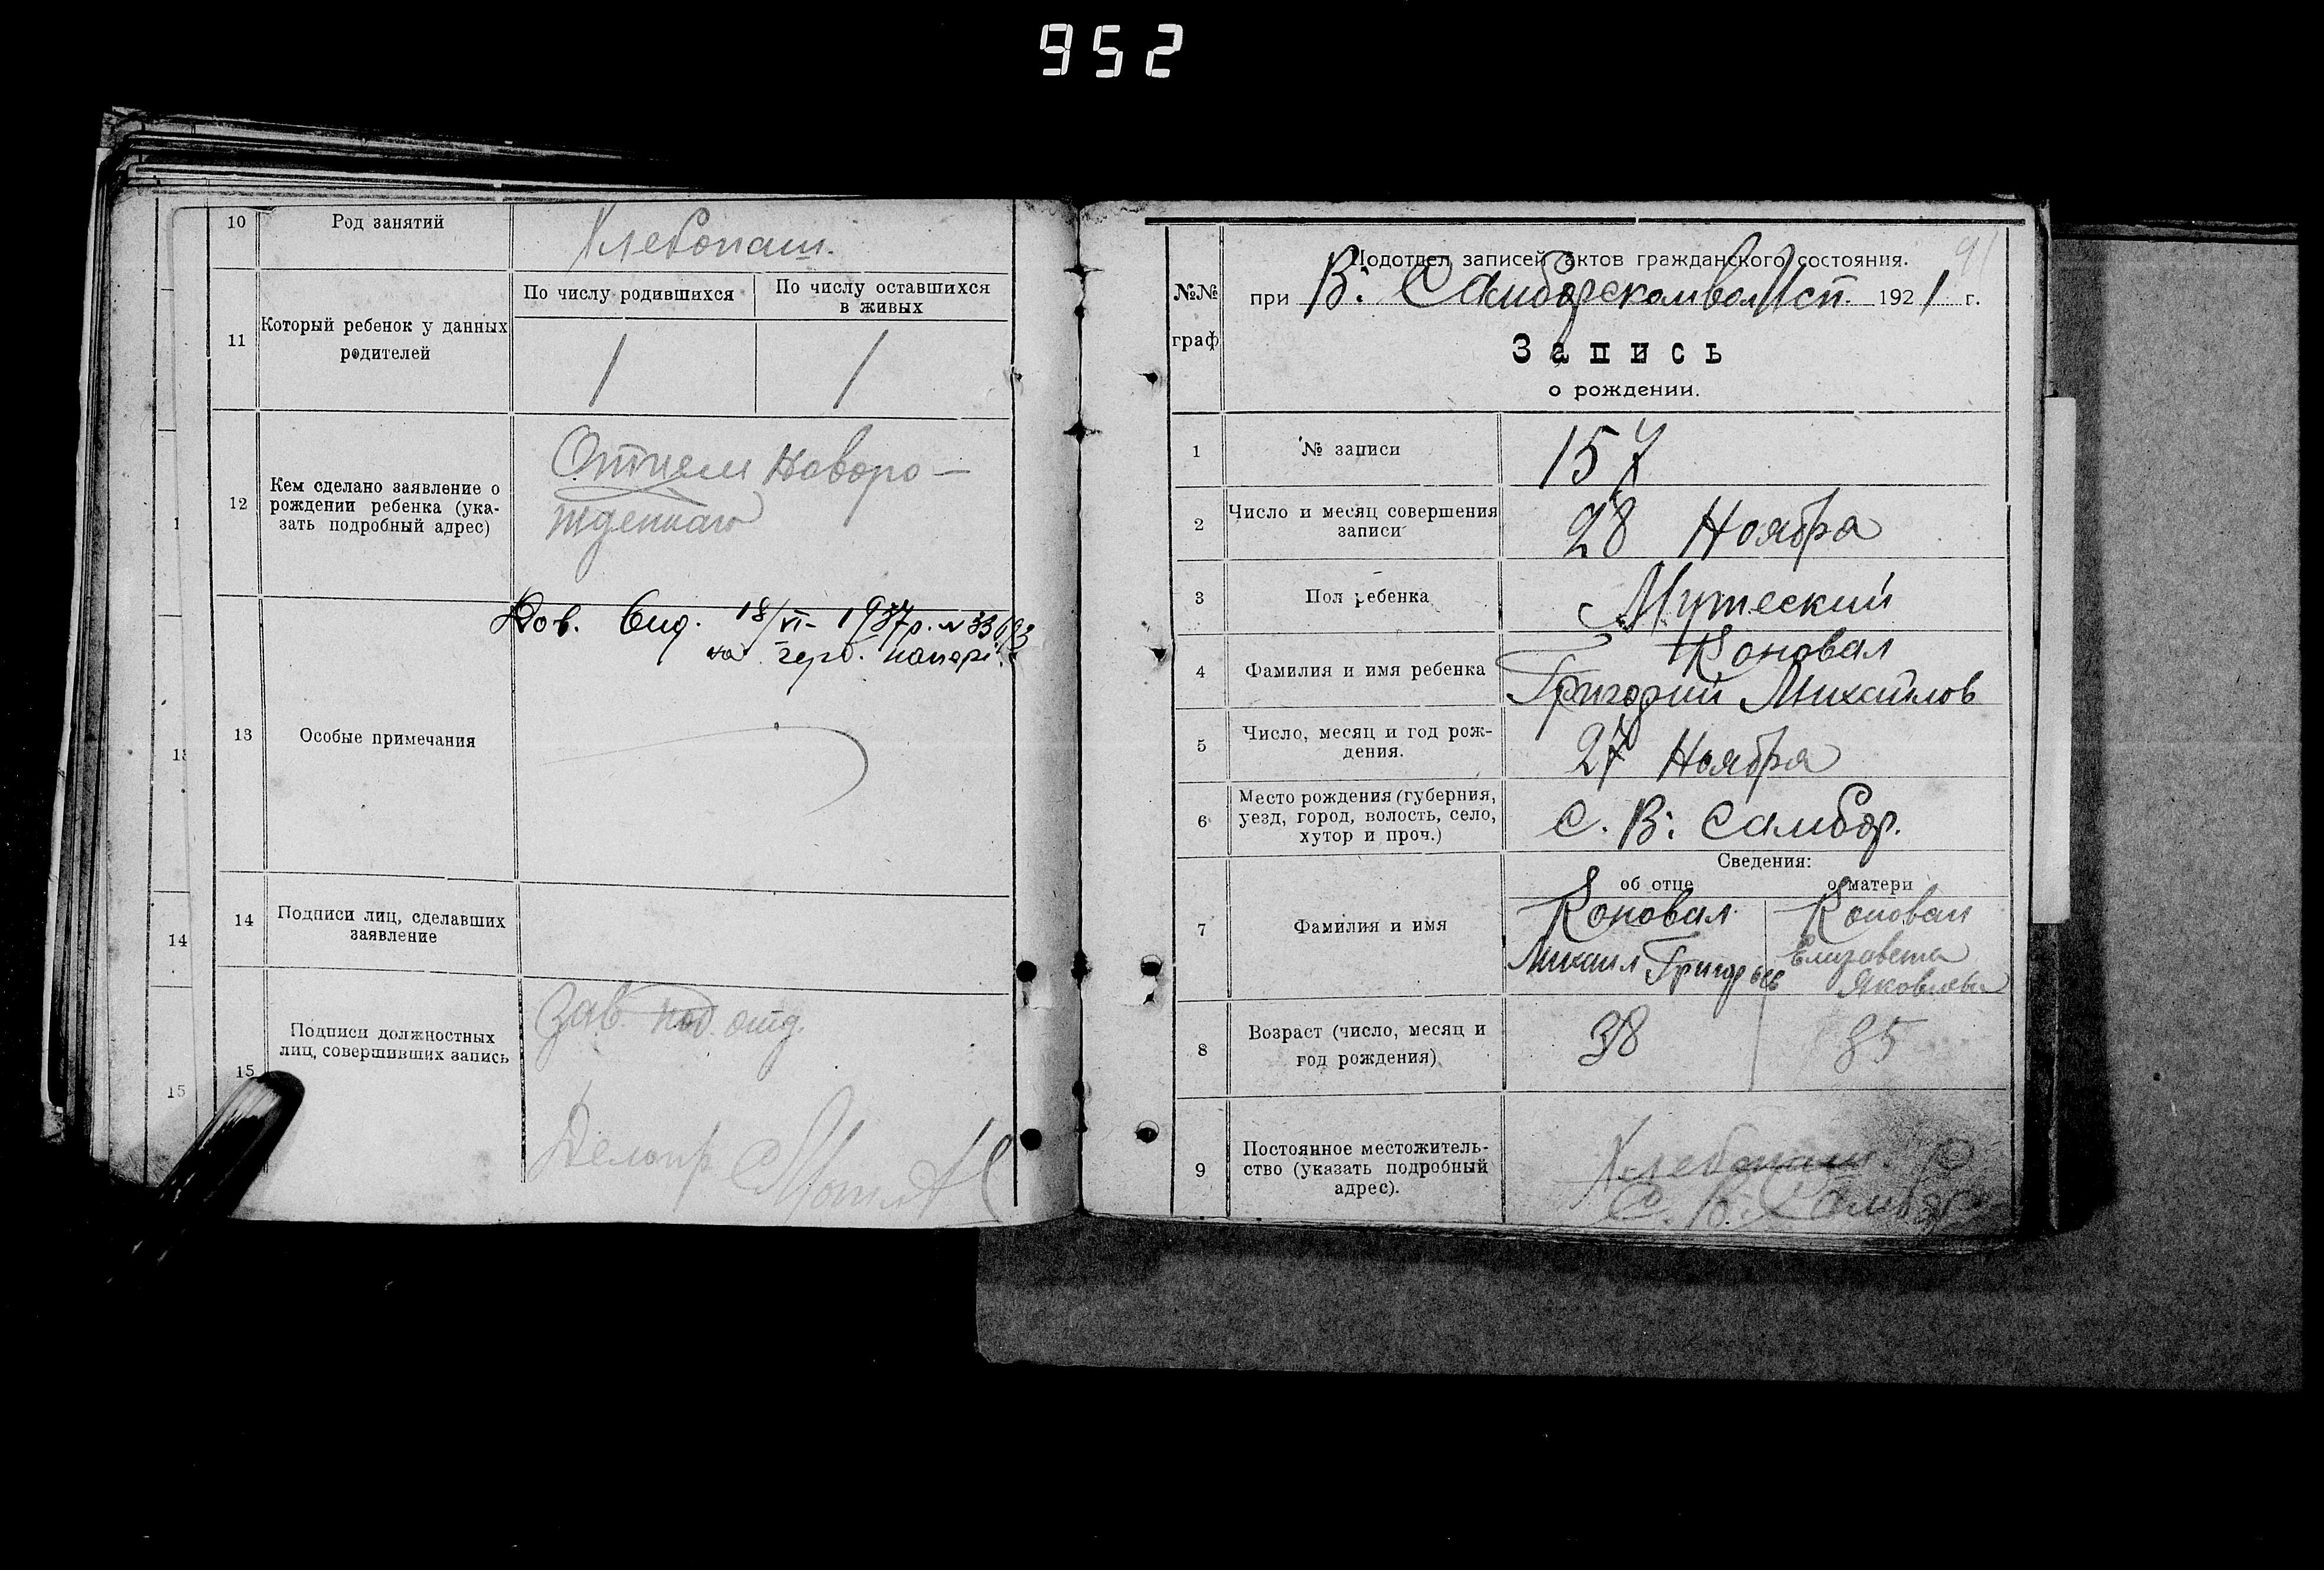 952
10 Род занятий Хлебопаш.
11 Который ребенок у данных родителей
По числу родившихся
По числу оставшихся
в живых
1 1
12 Кем сделано заявление о
рождении ребенка (ука-
зать подробный адрес)
Отцем Новоро-
жденнаго
Дов. вид. 18/VI- 1937р. №
на герб. папері.
13 Особые примечания
14 Подписи лиц, сделавших
заявление
15 Подписи должностных
лиц, совершивших запись
Зав. под. отд.
Делопр
1
14
15
91
№№
граф
Подотдел записей актов гражданского состояния.
при В. Самборском вол Исп. 1921 г.
Запись
о рождении.
1 № записи 157
2 Число и месяц совершения
записи
28 Ноября
3 Пол ребенка Мужеский
4 Фамилия и имя ребенка
Коновал
Григорий Михайлов
5 Число, месяц и год рож-
дения.
27 Ноября
6 Место рождения (губерния,
уезд, город, волость, село,
хутор и проч.)
С. В: Самбор.
Сведения:
об отце о матери
7 Фамилия и имя
Коновал
Михаил Григорьев
Коновал
Елизавета
Яковлева
8 Возраст (число, месяц и
год рождения)
38 35
9 Постоянное местожитель-
ство (указать подробный
адрес).
Хлебопаш.
С. В. Самбор